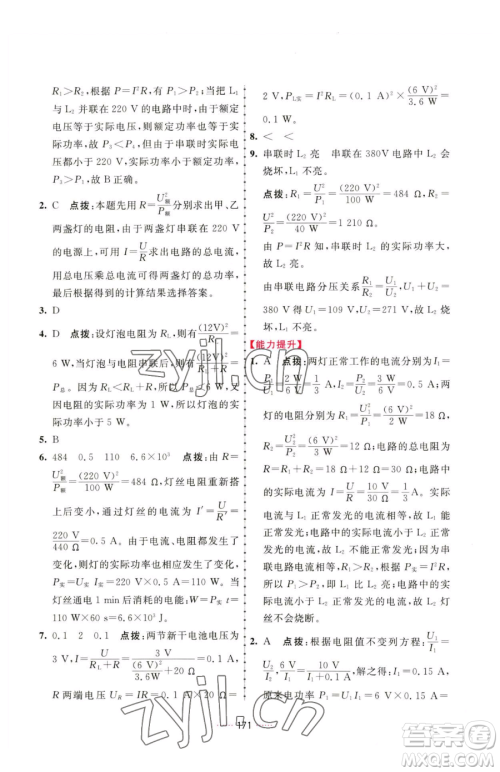 R₁>R₂，根据 P=I²R，有 P₁>P₂；当 L₁
与 L₂ 并联在 220 V 的电路中时，由于额定
电压等于实际电压，则额定功率等于实际
功率，故 P₁<P₂。但由于串联时实际电
压都小于额定电压，实际功率小于额定功
率，P₃>P₁，故 B 正确。
2. C 点拨：本题先用 R=U²额/P额 分别求出甲、乙
两盏灯的电阻，由于两盏灯串联在 220 V
的电路中，再用 I=U/R 求出电路的总电流，
用总电压乘总电流可得两盏灯的总功率，
根据得到的计算结果选择答案。
3. D
4. D 点拨：设灯泡电阻为 R_L，则有 (12V)²/R_L =
6 W，当灯泡与电阻串联后，则有 (12V)²/(R_L+R) =
P总。因为 R_L<R_L+R，所以 P总<6 W，又
因为 
灯泡的实际功率为 1 W，所以灯泡的实际
功率不大于 5 W。
5. B
6. 484 0.5 110 6.6×10³ 点拨：由 R=
U²额/P额=(220 V)²/100 W=484 Ω，灯丝电阻重新搭
上后变小，通过灯丝的电流为 I′=U/R′=
220 V/440 Ω=0.5 A；由于灯丝的电阻发生了
变化，则灯的实际功率也相应发生了变化，
P实=U实 I实=220 V×0.5 A=110 W；当
灯丝通电 1 min 后消耗的电能：W=Pt=
110 W×60 s=6.6×10³ J。
7. 0.1 2 0.1 点拨：两节新干电池电压为
3 V，I=U/(R_L+R)=3 V/((6 V)²/3.6 W+20 Ω)=0.1 A，
R 两端电压 U_R=IR=0.1 A×20 Ω=
2 V，P_L实=I²R_L=(0.1 A)²×(6 V)²/3.6 W=
0.1 W。
8. < <
9. 串联时 L₂ 亮 串联在 380V 电路中 L₂ 会
烧坏，L₁ 不亮。
点拨：R₁=U²/P₁=(220 V)²/100 W=484 Ω，R₂=
U²/P₂=(220 V)²/40 W=1 210 Ω。
由 P=I²R 知，串联时 L₂ 的实际功率大，
所以 L₂ 亮。
由串联电路分压关系：R₁/R₂=U₁/U₂，U₁+U₂=
380 V 得 U₁=109 V，U₂=271 V，故 L₂
烧坏，L₁ 不亮。
【能力提升】
1. A 点拨：两灯正常工作的电流分别为 I₁=
P₁/U₁=2 W/6 V=1/3 A，I₂=P₂/U₂=3 W/6 V=1/2 A；两
灯的电阻分别为 R₁=U²/P₁=(6 V)²/2 W=18 Ω，
R₂=U²/P₂=(6 V)²/3 W=12 Ω；电路的总电阻
R=R₁+R₂=18 Ω+12 Ω=30 Ω，电路中
的实际电流为 I=U/R=10 V/30 Ω=1/3 A；电路
的实际电流与 L₁ 正常发光的电流相等，
故 L₁ 正常发光；电路的实际电流小于 L₂
正常发光的电流，故 L₂ 不能正常发光；
串联电路电流相等，根据 P实=I²R 可知，
所以 P₁>P₂，即 L₁ 比 L₂ 亮；电路中的实
际电流没有大于两灯的正常发光电流，不
会出现灯丝烧断。
2. A 点拨：根据电阻值不变列方程：U₁/I₁=
U₂/I₂，6 V/I₁=10 V/(I₁+0.1 A)，解之得：I₁=0.15 A，
原来电灯功率 P₁=U₁I₁=6 V×0.15 A=
171
zyjl.cn
zyjl.cn
作业精灵